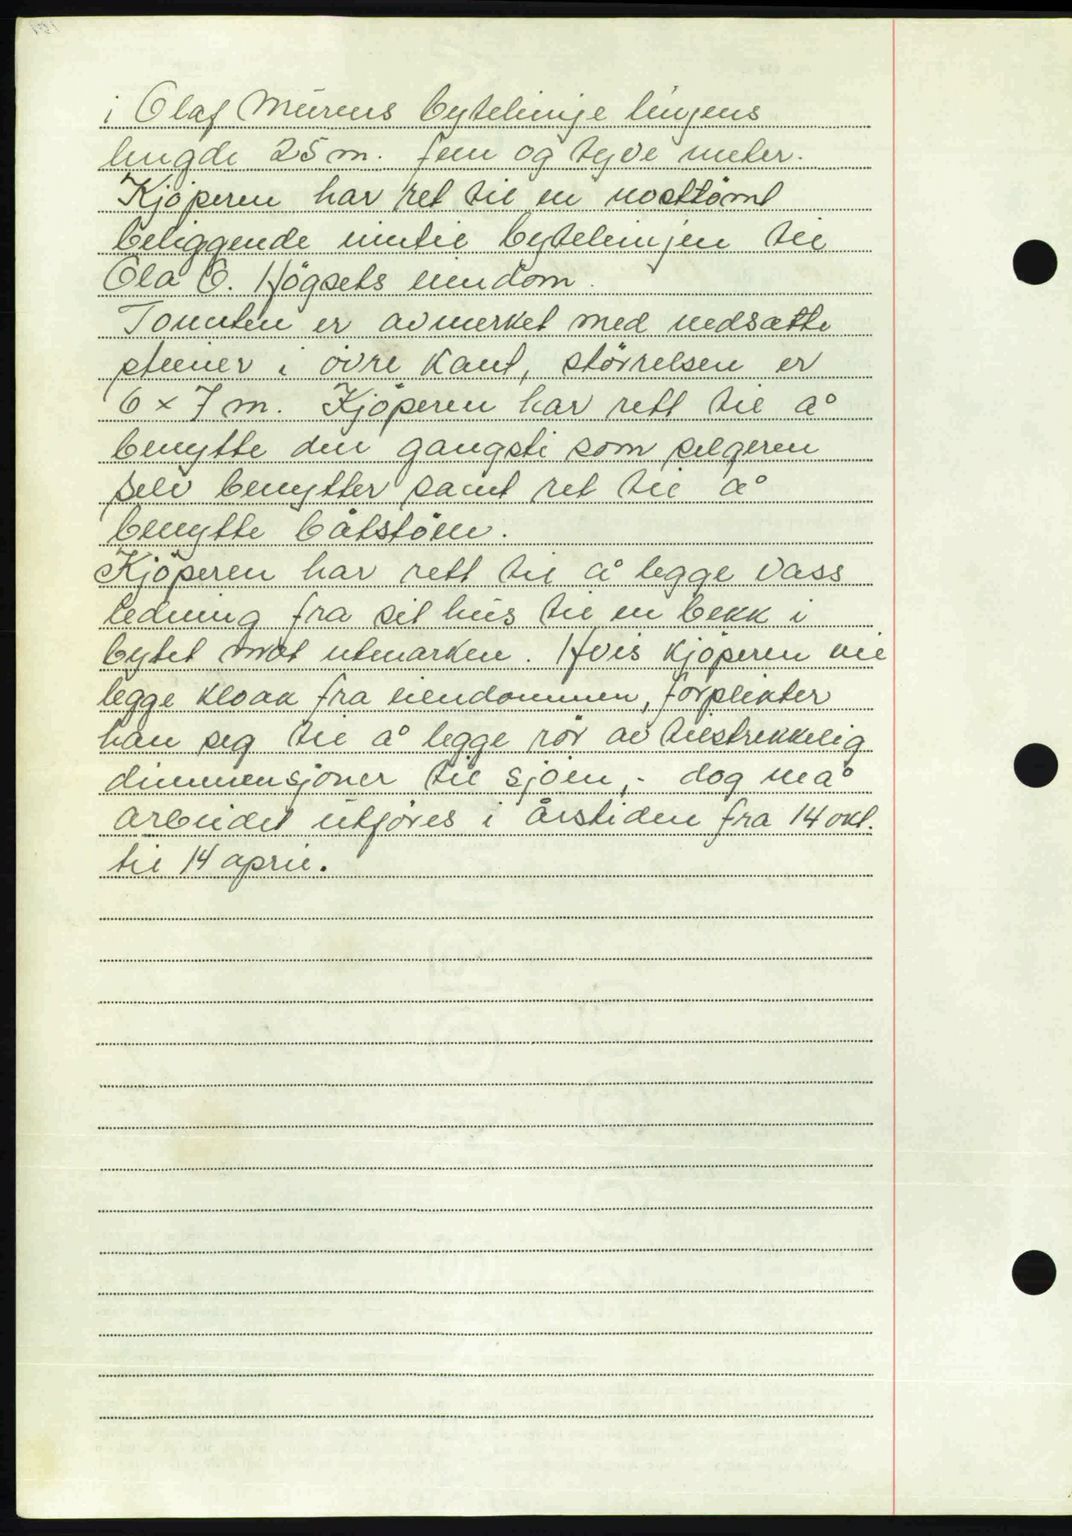 i Olaf Mürens bytelinje linjens
lengde 25 m. fem og tyve meter.
Kjöperen har ret til en nosttomt
beliggende inntil bytelinjen til
Ola O. Högsets eiendom.
Tomnten er avmerket med nedsatte
steiner i övre kant, störrelsen er
6 x 7 m. Kjöperen har rett til å
benytte den gangsti som selgeren
selv benytter samt ret til å
benytte båtstöen.
Kjöperen har rett til å legge vass
ledning fra sit hus til en bekk i
bytet mot utmarken. Hvis kjöperen vil
legge kloak fra eiendommen, forplikter
han seg til å legge rör av tilstrekkelig
dimmensjoner til sjöen, - dog må
arbeidet utföres i årstiden fra 14 okt.
til 14 april.